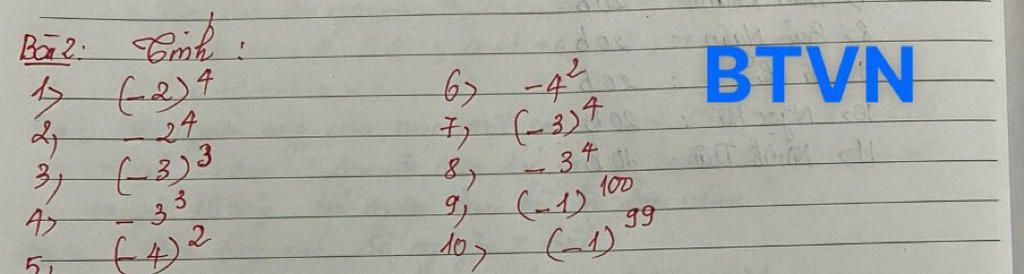 Bài 2: Tính :
1, (-2)^4
2, -2^4
3, (-3)^3
4, -3^3
5, (-4)^2
6, -4^2
7, (-3)^4
8, -3^4
9, (-1)^100
10, (-1)^99
BTVN